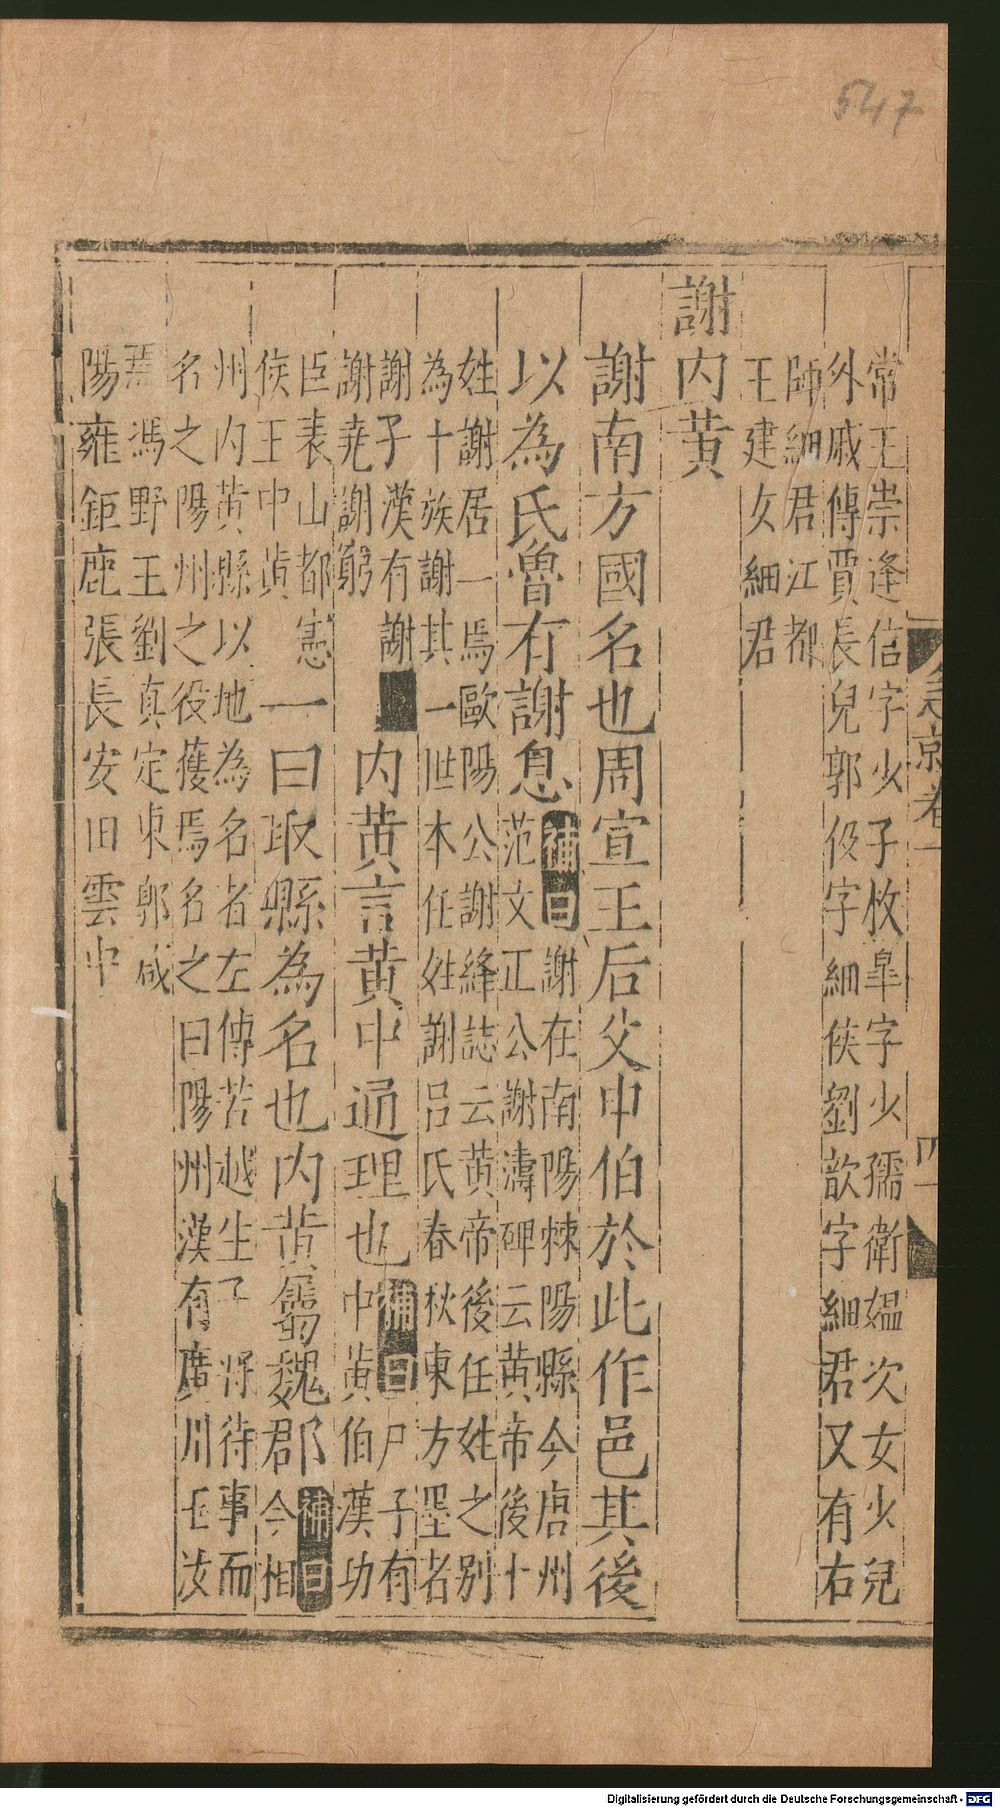 547
常王崇逢信字少子枚皐字少孺衛媼次女少兒
外戚傳賈長兒郭伋字細侯劉歆字細君又有右
師細君江都
王建女細君
謝内黄
謝南方國名也周宣王后父申伯於此作邑其後
以為氏魯有謝息
補曰謝在南陽棘陽縣今唐州
范文正公謝濤碑云黄帝後十
姓謝居一焉歐陽公謝絳誌云黄帝後任姓之别
為十族謝其一世本任姓謝吕氏春秋東方墨者
謝子漢有謝
謝堯謝躬
内黄言黄中通理也
補曰尸子有
中黄伯漢功
臣表山都憲
侯王中黄
一曰取縣為名也内黄屬魏郡
補曰
今相
州内黄縣以地為名者左傳苦越生子將待事而
名之陽州之役獲焉名之曰陽州漢有廣川王汝
焉馮野王劉真定東郭咸
陽雍鉅鹿張長安田雲中
志京卷一
四一
Digitalisierung gefördert durch die Deutsche Forschungsgemeinschaft - DFG